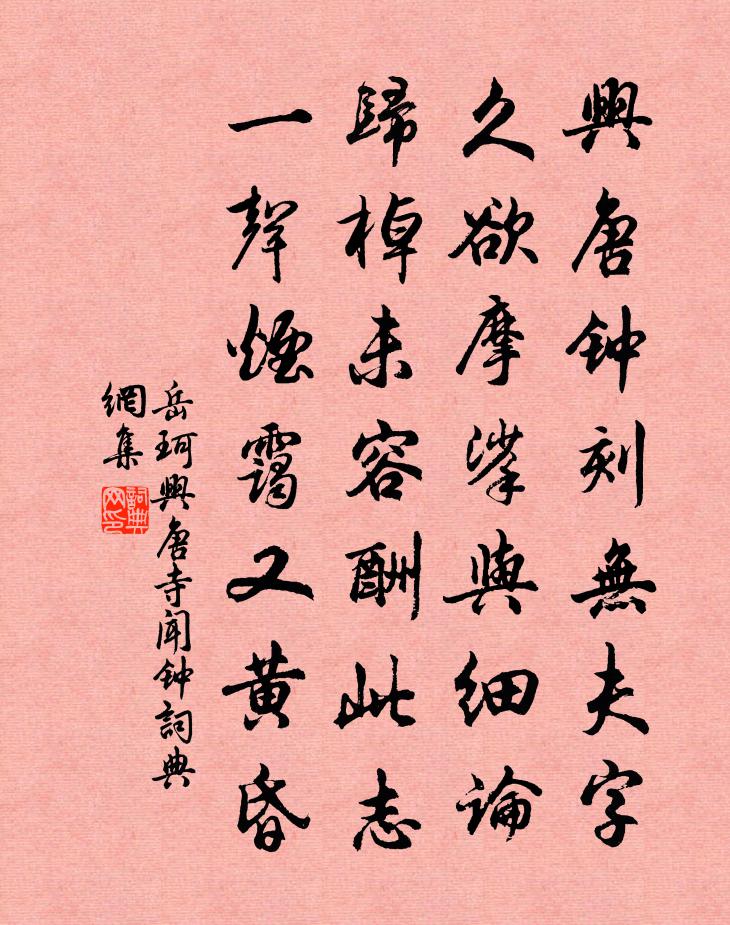 興唐钟刻無夫字
久欲摩挲與细論
歸棹未容酬此志
一聲煙靄又黄昏
岳珂興唐寺聞钟詞典
網集
詞典
网印